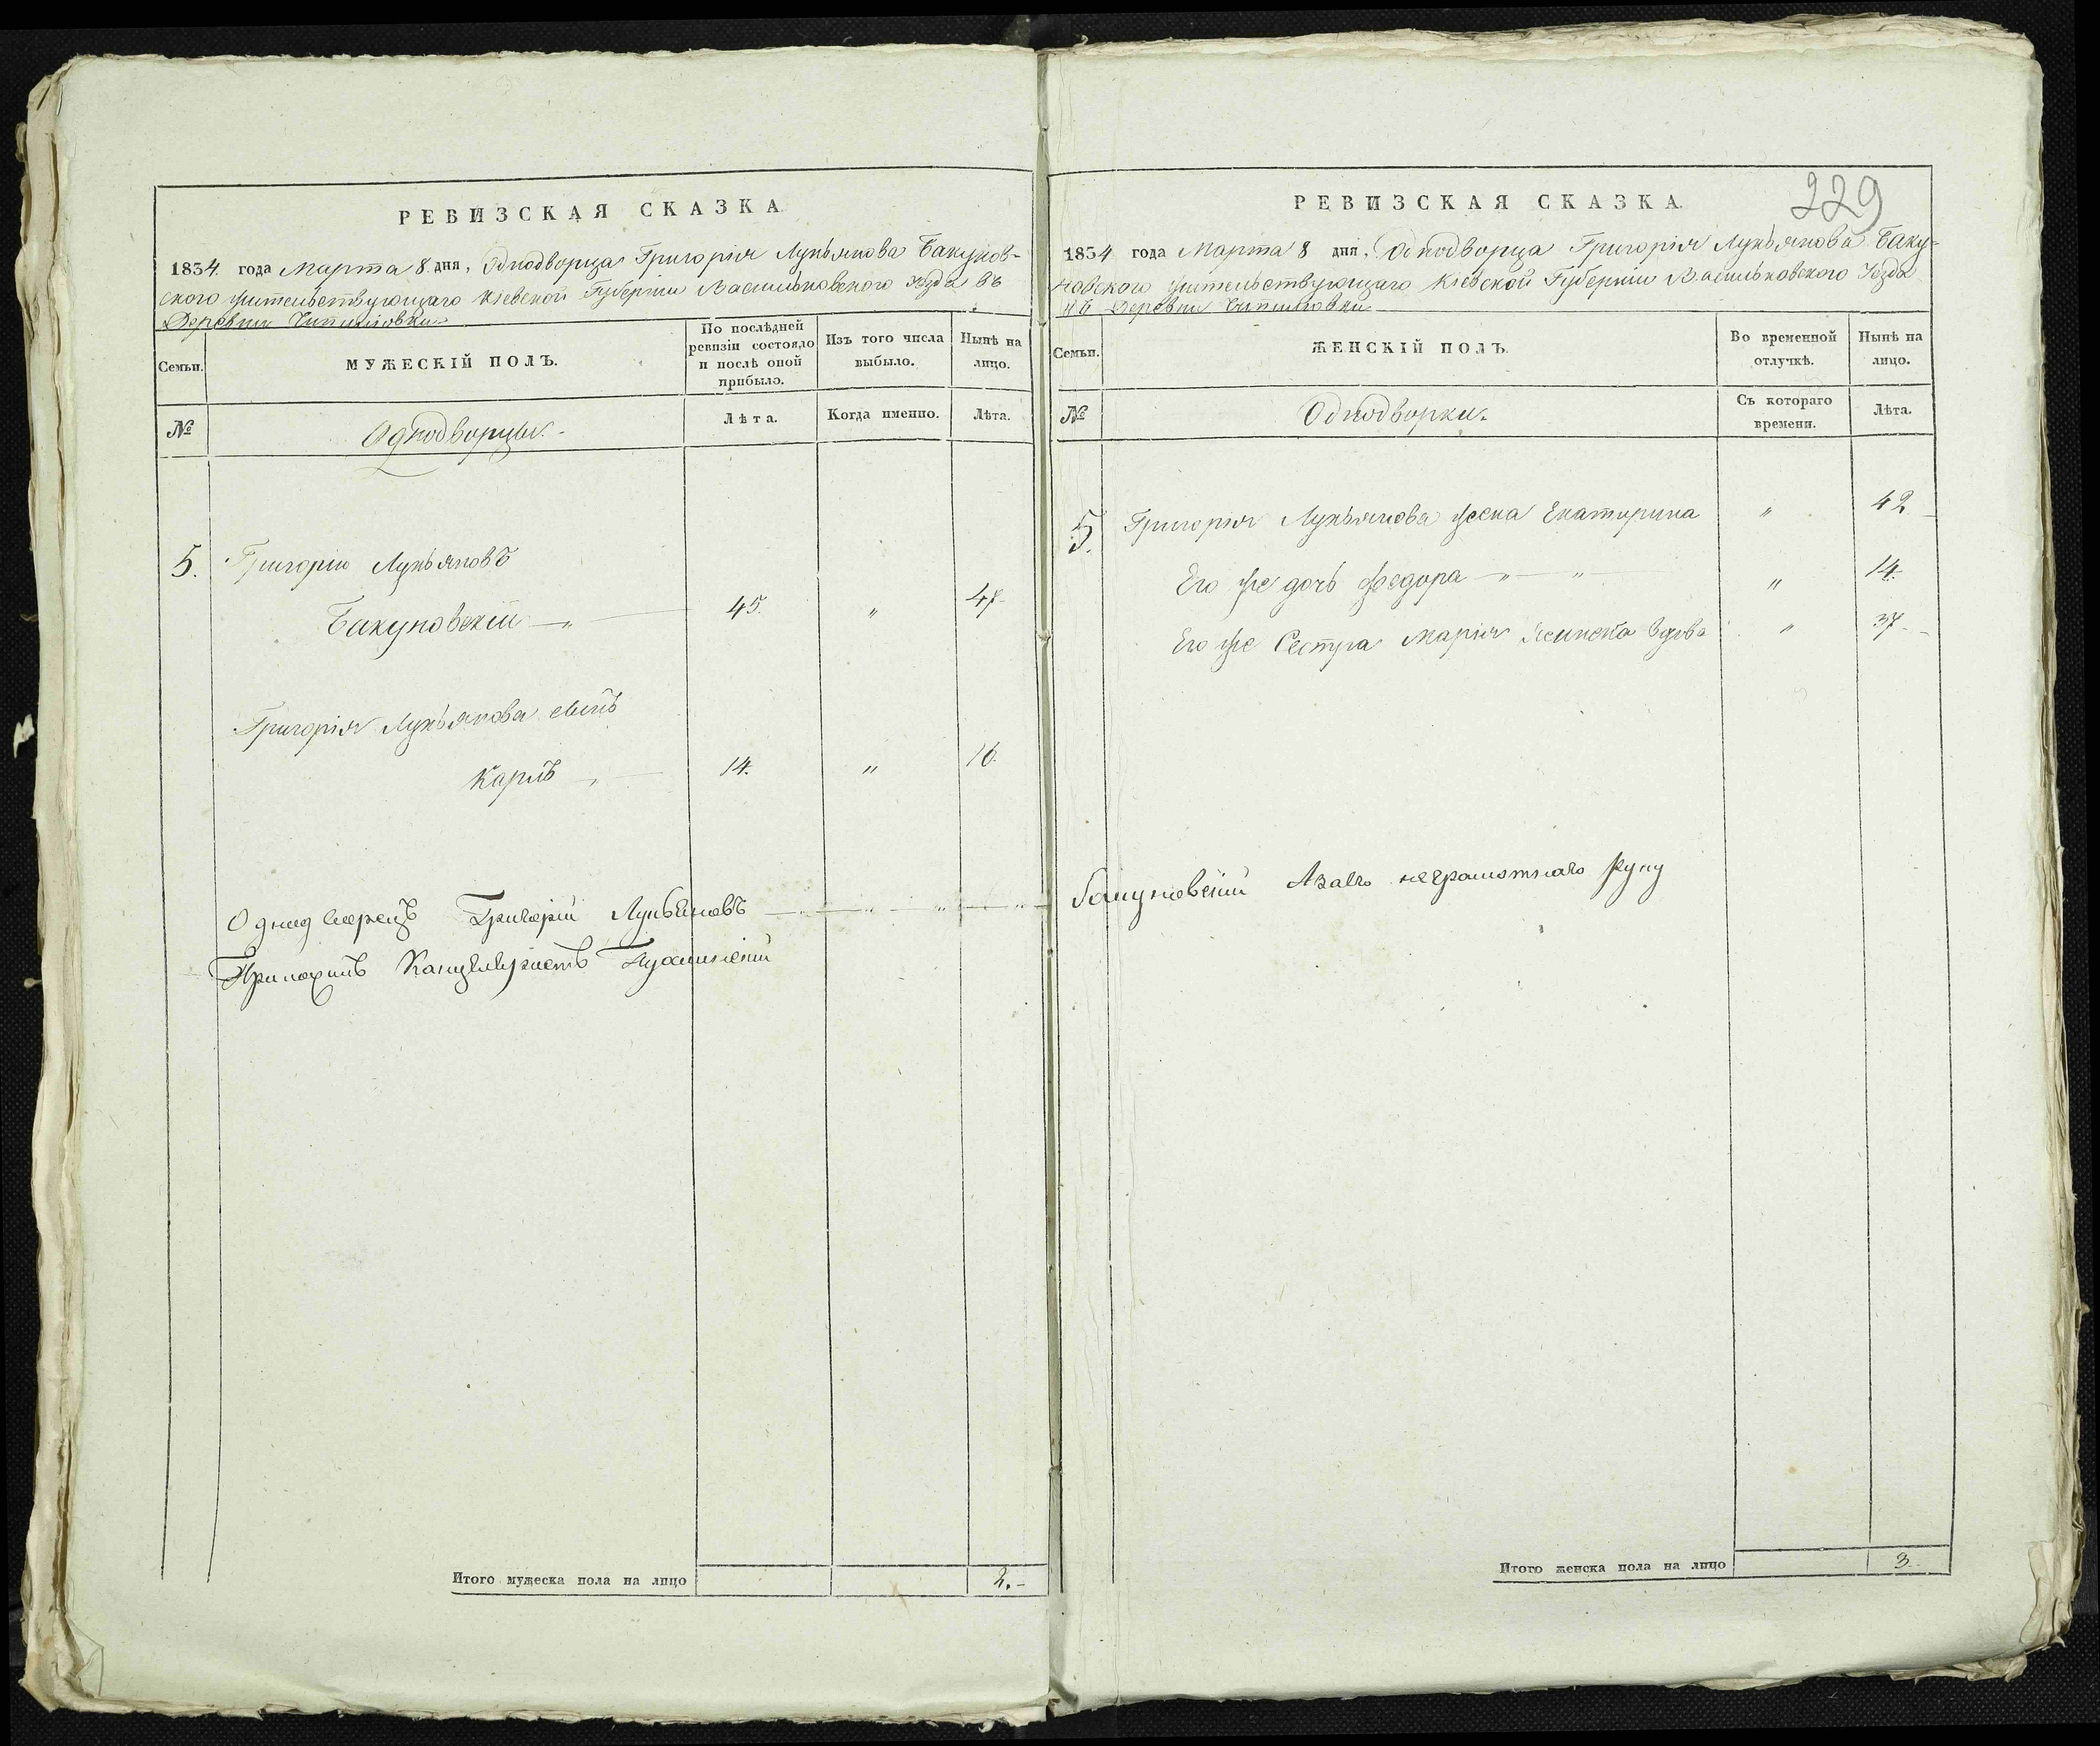 РЕВИЗСКАЯ СКАЗКА
1834 года Марта 8 дня, Однодворца Григорія Лукьянова Бакунов-
ского жительствующаго Кіевской Губерніи Васильковскаго уѣзда въ
Деревни Чипиловки
Семьи.
МУЖЕСКІЙ ПОЛЪ.
По послѣдней ревизіи состояло и послѣ оной прибыло.
Изъ того числа выбыло.
Нынѣ на лицо.
№
Однодворцы.
Лѣта.
Когда именно.
Лѣта.
5. Григорій Лукьяновъ
Бакуновскій — „ — 45. „ 47.
Григорія Лукьянова сынъ
Карлъ „ — 14. „ 16.
Однодворецъ Григорій Лукьяновъ
Приложилъ Канцеляристъ
Итого мужеска пола на лицо 2.
229
РЕВИЗСКАЯ СКАЗКА.
1834 года Марта 8 дня, Однодворца Григорія Лукьянова Баку-
новского жительствующаго Кіевской Губерніи Васильковского Уѣзда
въ Деревни Чипиловки
Семьи.
ЖЕНСКІЙ ПОЛЪ.
Во временной отлучкѣ.
Нынѣ на лицо.
№
Однодворки.
Съ котораго времени.
Лѣта.
5. Григорія Лукьянова жена Екатирина „ 42
Его же дочь Федора — „ — „ — „ 14.
Его же Сестра Марія вдова „ 37
Бакуновскій Авмѣсто неграмотнаго Руку
Итого женска пола на лицо 3.